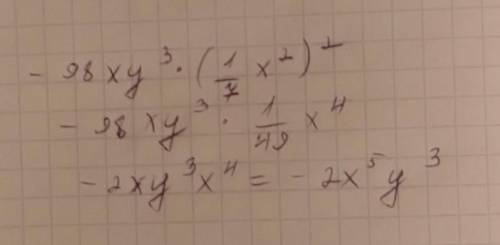 - 98xy³ · (1/7 x²)²
- 98xy³ · 1/49 x⁴
-2xy³x⁴ = -2x⁵y³